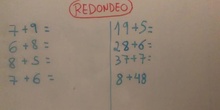 REDONDEO
7+9=
6+8=
8+5=
7+6=
19+5=
28+6=
37+7=
8+48